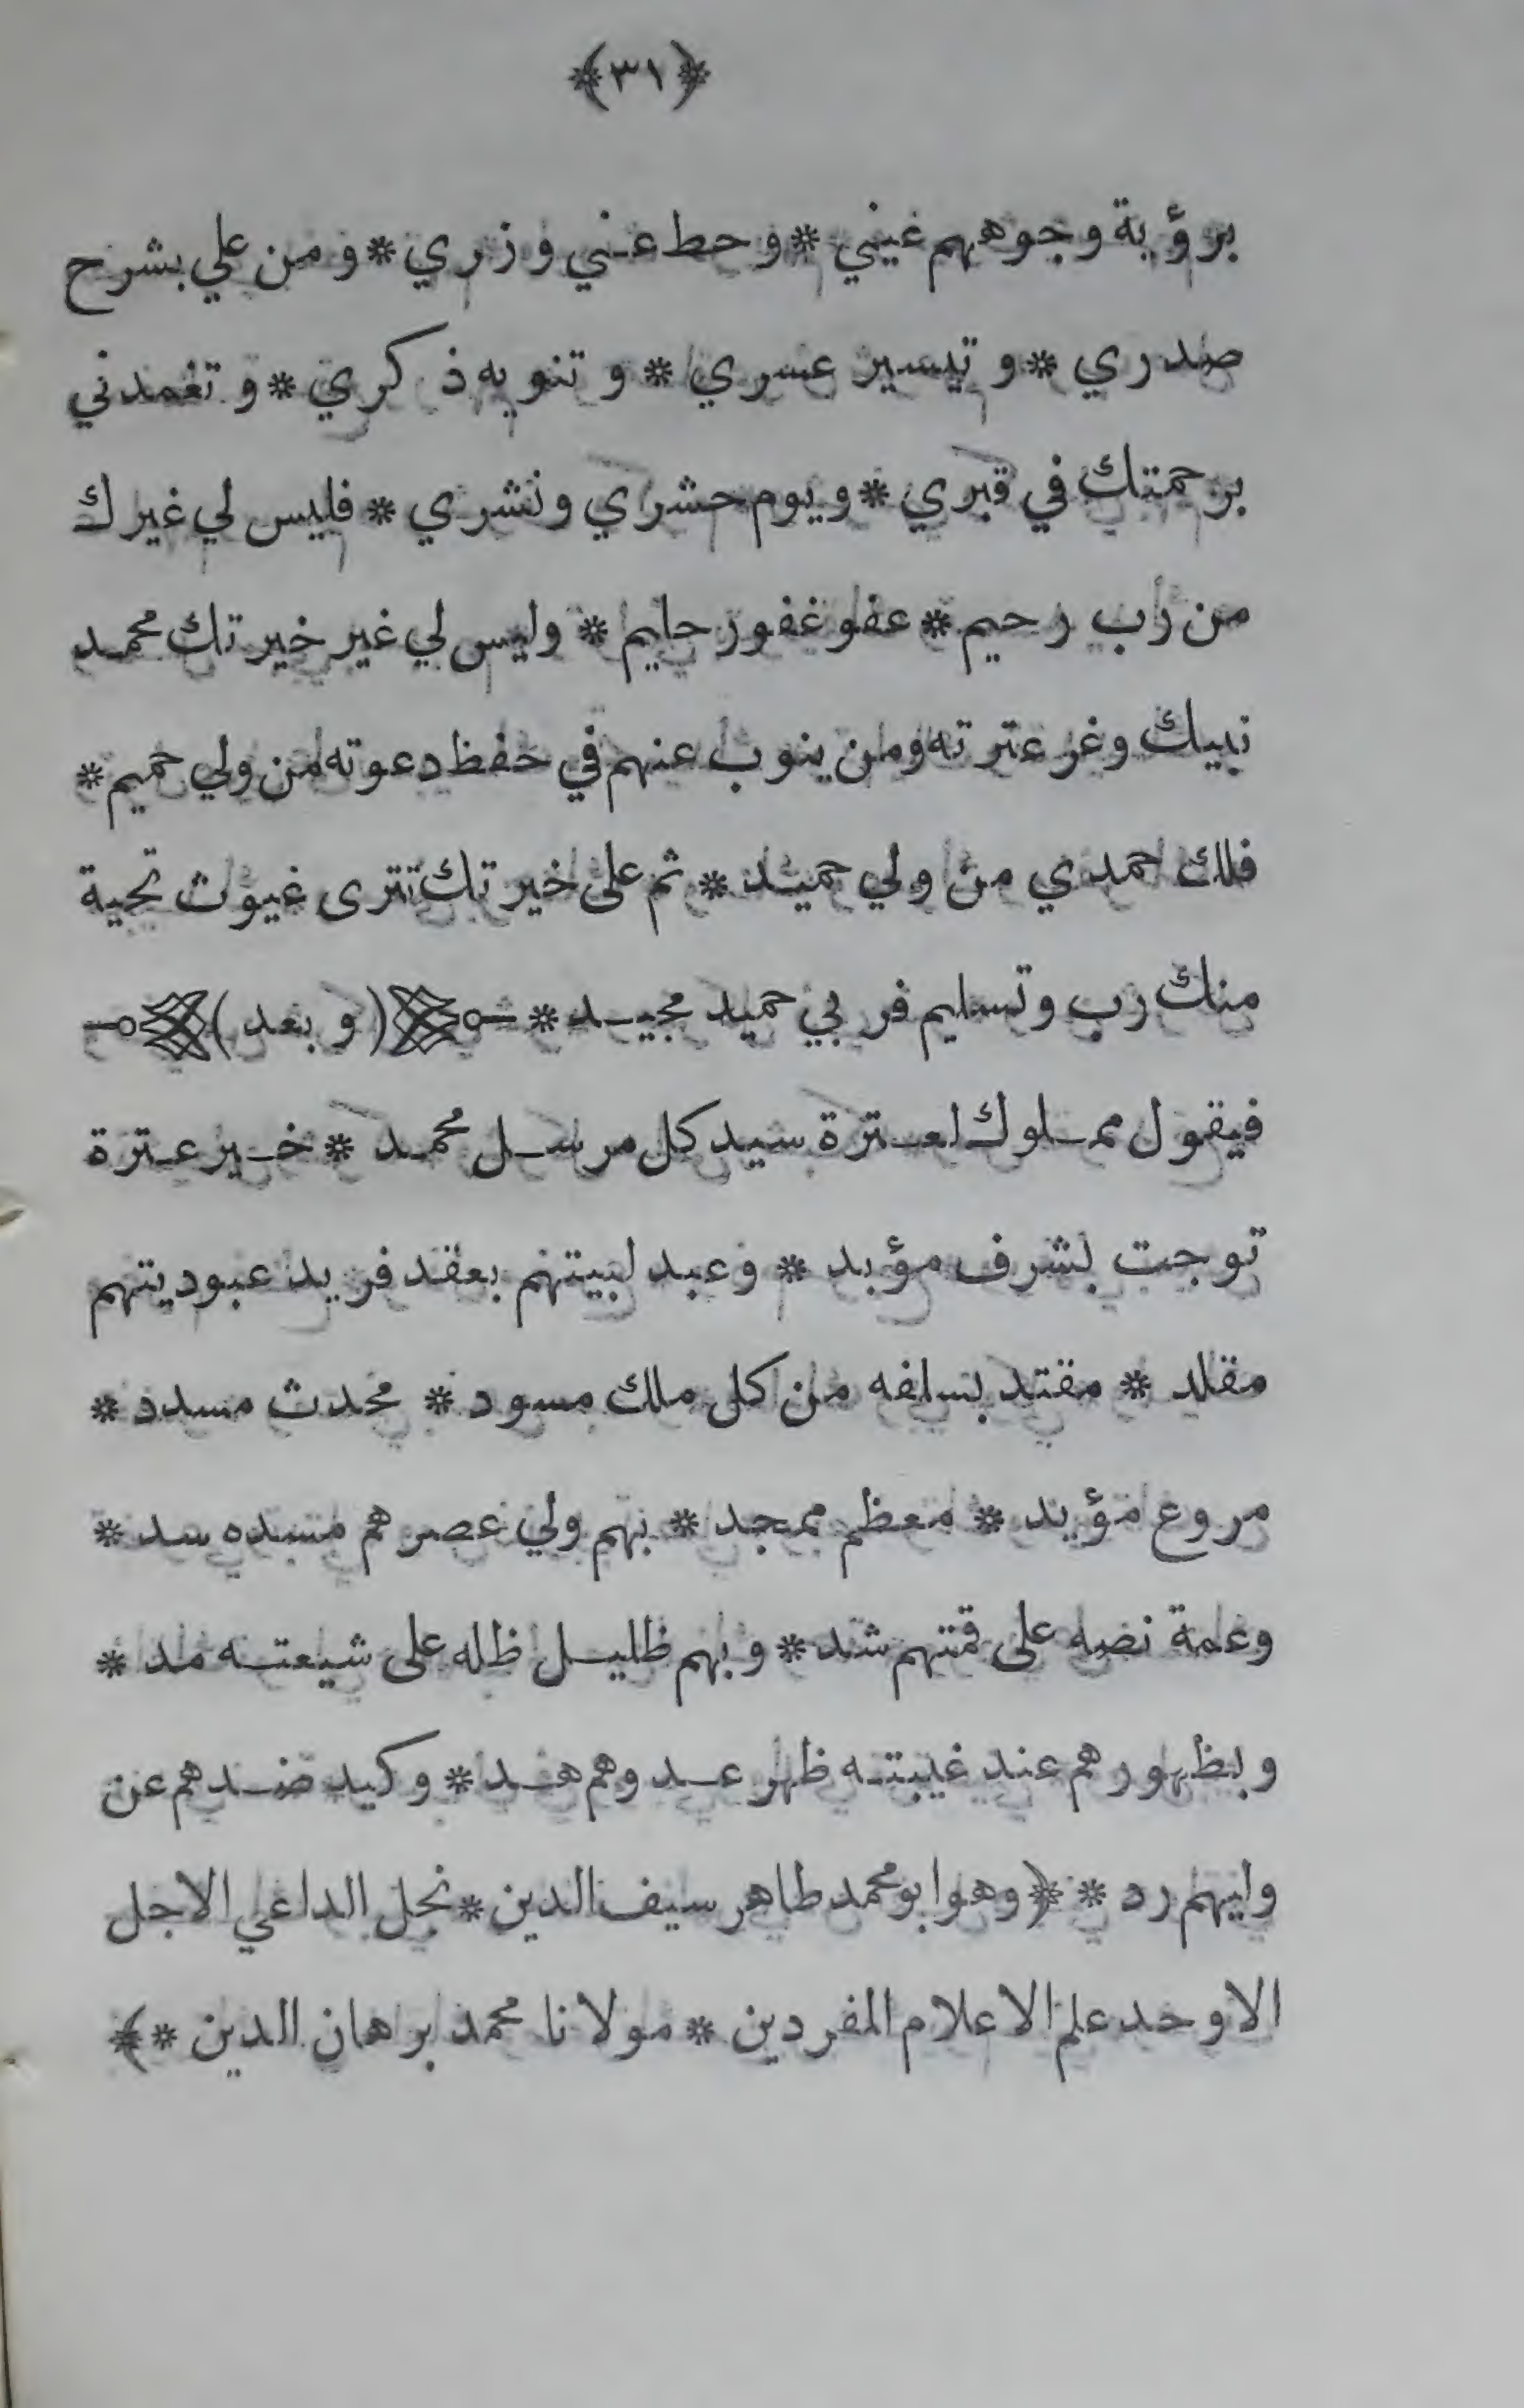 ﴿٣١﴾
برؤية وجوههم عيني * وحط عني وزري * ومن علي بشرح
صدري * وتيسير عسري * وتنويه ذكري * وتغمدني
برحمتك في قبري * ويوم حشري ونشري * فليس لي غيرك
من رب رحيم * عفو غفور حليم * وليس لي غير خيرتك محمد
نبيك وغر عترته ومن ينوب عنهم في حفظ دعوته من ولي حميم *
فلك احمدي من ولي حميد * ثم على خيرتك تترى غيوث تحية
منك رب وتسليم فربي حميد مجيد * (وبعد)
فيقول مملوك لعترة سيد كل مرسل محمد * خير عترة
توجت بشرف مؤبد * وعبد لبيتهم بعقد فريد عبوديتهم
مقلد * مقتد بسلفه من كل ملك مسود * محدث مسدد *
مروع مؤيد * معظم ممجد * بهم ولي عصرهم مسده سد *
وعمة نصه على قمتهم شد * وبهم ظليل ظله على شيعته مد *
وبظهورهم عند غيبته ظهر عدوهم هد * وكيد ضدهم عن
وليهم رد * ﴿وهو ابو محمد طاهر سيف الدين * نجل الداعي الاجل
الاوحد علم الاعلام المفردين * مولانا محمد برهان الدين *﴾